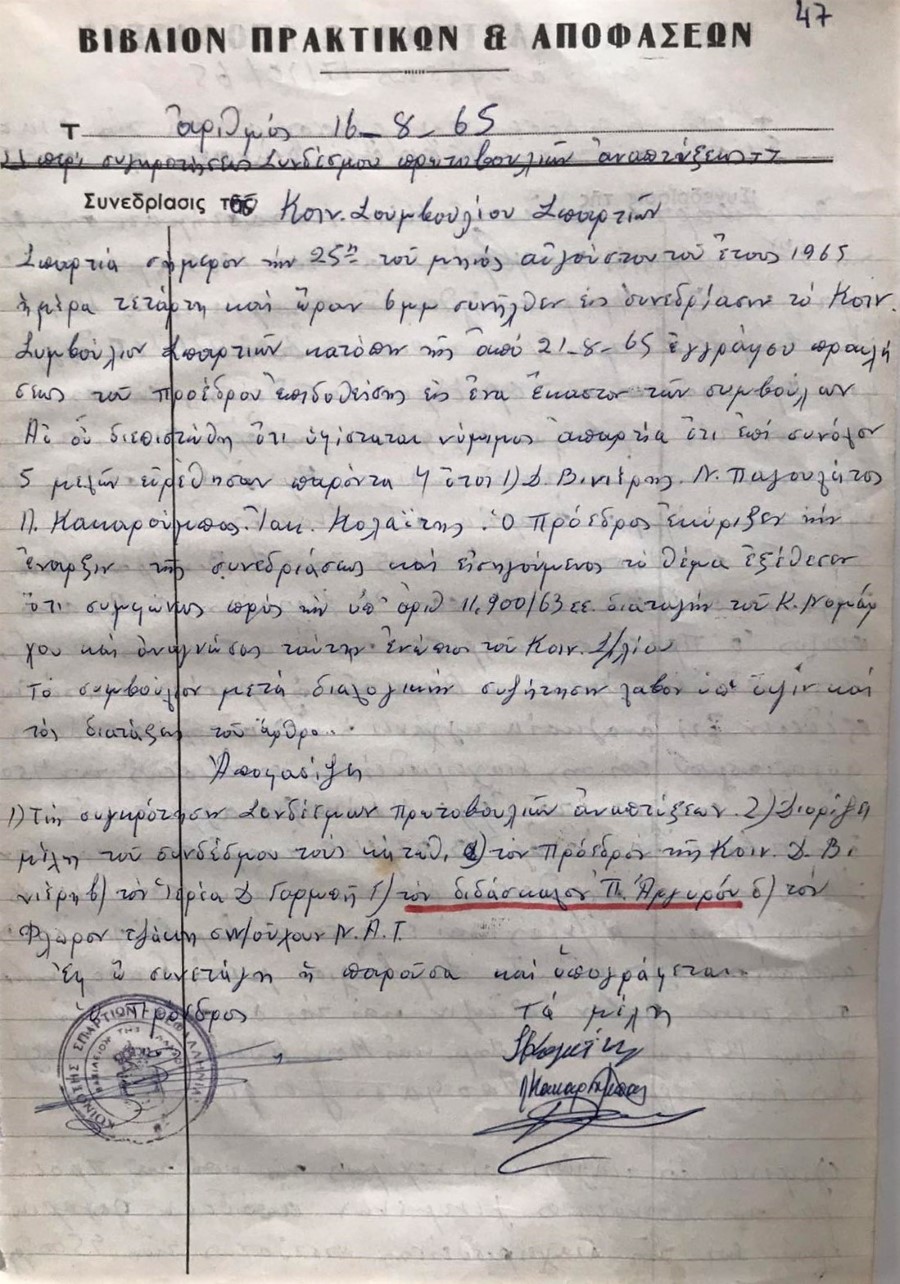 47
ΒΙΒΛΙΟΝ ΠΡΑΚΤΙΚΩΝ & ΑΠΟΦΑΣΕΩΝ
Τ ἀριθμός 16-8-65
περί συγκροτήσεως Συνδέσμου πρωτοβουλιῶν ἀναπτύξεως
Συνεδρίασις τοῦ Κοιν. Συμβουλίου Σπαρτιῶν
Σπαρτιά σήμερον τήν 25ην τοῦ μηνός αὐγούστου τοῦ ἔτους 1965
ἡμέρα τετάρτη καί ὥραν 6μμ συνῆλθεν εἰς συνεδρίασιν τό Κοιν.
Συμβούλιον Σπαρτιῶν κατόπιν τῆς ἀπό 21-8-65 ἐγγράφου προσκλή
σεως τοῦ προέδρου ἐπιδοθείσης εἰς ἕνα ἕκαστον τῶν συμβούλων
Ἀφ οὗ διεπιστώθη ὅτι ὑφίσταται νόμιμος ἀπαρτία ὅτι ἐπί συνόλου
5 μελῶν εὑρέθησαν παρόντα 4 ἤτοι 1) Δ. Βινιέρης. Ν. Παγουλάτος
Π. Κακαρούμπας. Ἰακ. Κολαΐτης. Ὁ Πρόεδρος ἐκύριξεν τήν
ἔναρξιν τῆς συνεδριάσεως καί εἰσηγούμενος τό θέμα ἐξέθεσεν
ὅτι συμφώνως πρός τήν ὑπ ἀριθ 11.900/63 διαταγήν τοῦ Κ. Νομάρ
χου καί ἀναγνώσας ταύτην ἐνώπιον τοῦ Κοιν. Σ/λίου
Τό συμβούλιον μετά διαλογικήν συζήτησιν λαβόν ὑπ' ὄψιν καί
τάς διατάξεις τοῦ ἄρθρο..
Ἀποφασίζει
1) Τήν συγκρότησιν Συνδέσμων Πρωτοβουλιῶν ἀναπτύξεων. 2) Διορίζει
μέλη τοῦ συνδέσμου τούς κάτωθι, α) τόν Πρόεδρον τῆς Κοιν. Δ. Βι
νιέρη β) τόν Ἱερέα Δ Γαρμπῆ γ) τόν διδάσκαλον Π. Ἀργυρόν δ) τόν
Φλῶρον τζάκη συν/οῦχον Ν.Α.Τ.
Ἐφ ᾧ συνετάγη ἡ παροῦσα καί ὑπογράφεται..
Ὁ Πρόεδρος Τά μέλη
ΚΟΙΝΟΤΗΣ ΣΠΑΡΤΙΩΝ ΚΕΦΑΛΛΗΝΙΑΣ
ΒΑΣΙΛΕΙΟΝ ΤΗΣ ΕΛΛΑΔΟΣ
Πκακαρούμπας